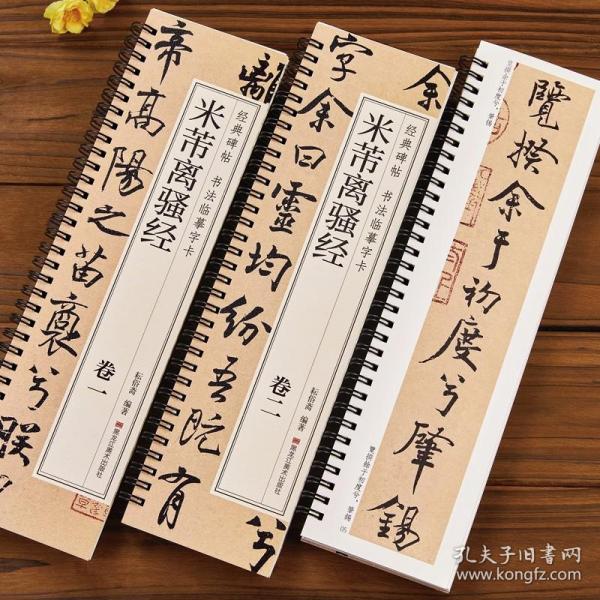 帝高陽之苗裔兮朕
经典碑帖 书法临摹字卡
米芾离骚经
卷一
耘俗斋 编著
黑龙江美术出版社
字余曰靈均紛吾既有
余
兮
经典碑帖 书法临摹字卡
米芾离骚经
卷二
耘俗斋 编著
黑龙江美术出版社
覽揆余于初度兮肇錫
孔夫子旧书网
www.kongfz.com